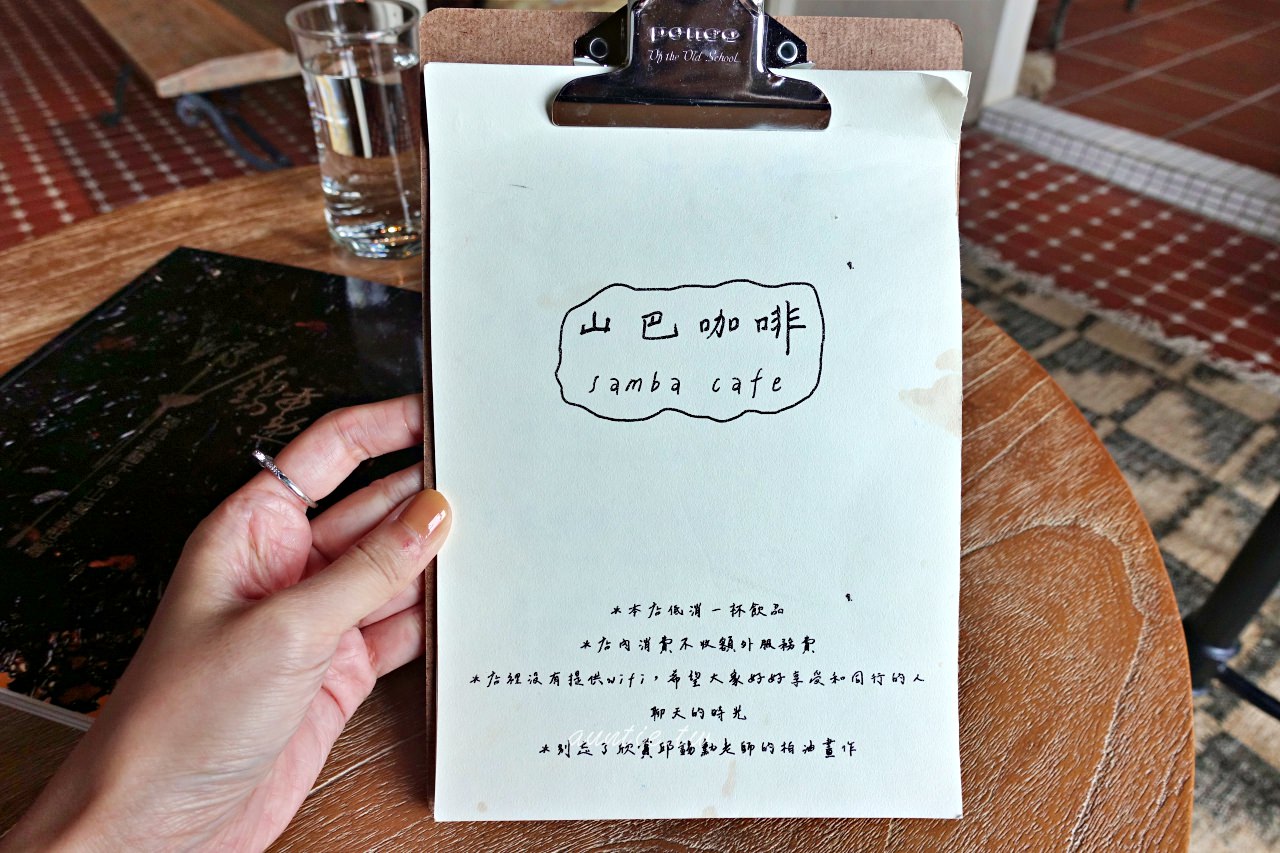 penco
Of the Old School
山巴咖啡
samba cafe
*本店低消一杯飲品
*店內消費不收額外服務費
*店裡沒有提供wifi，希望大家好好享受和同行的人
聊天的時光
*別忘了欣賞邱錫勳老師的柏油畫作
auntie tin